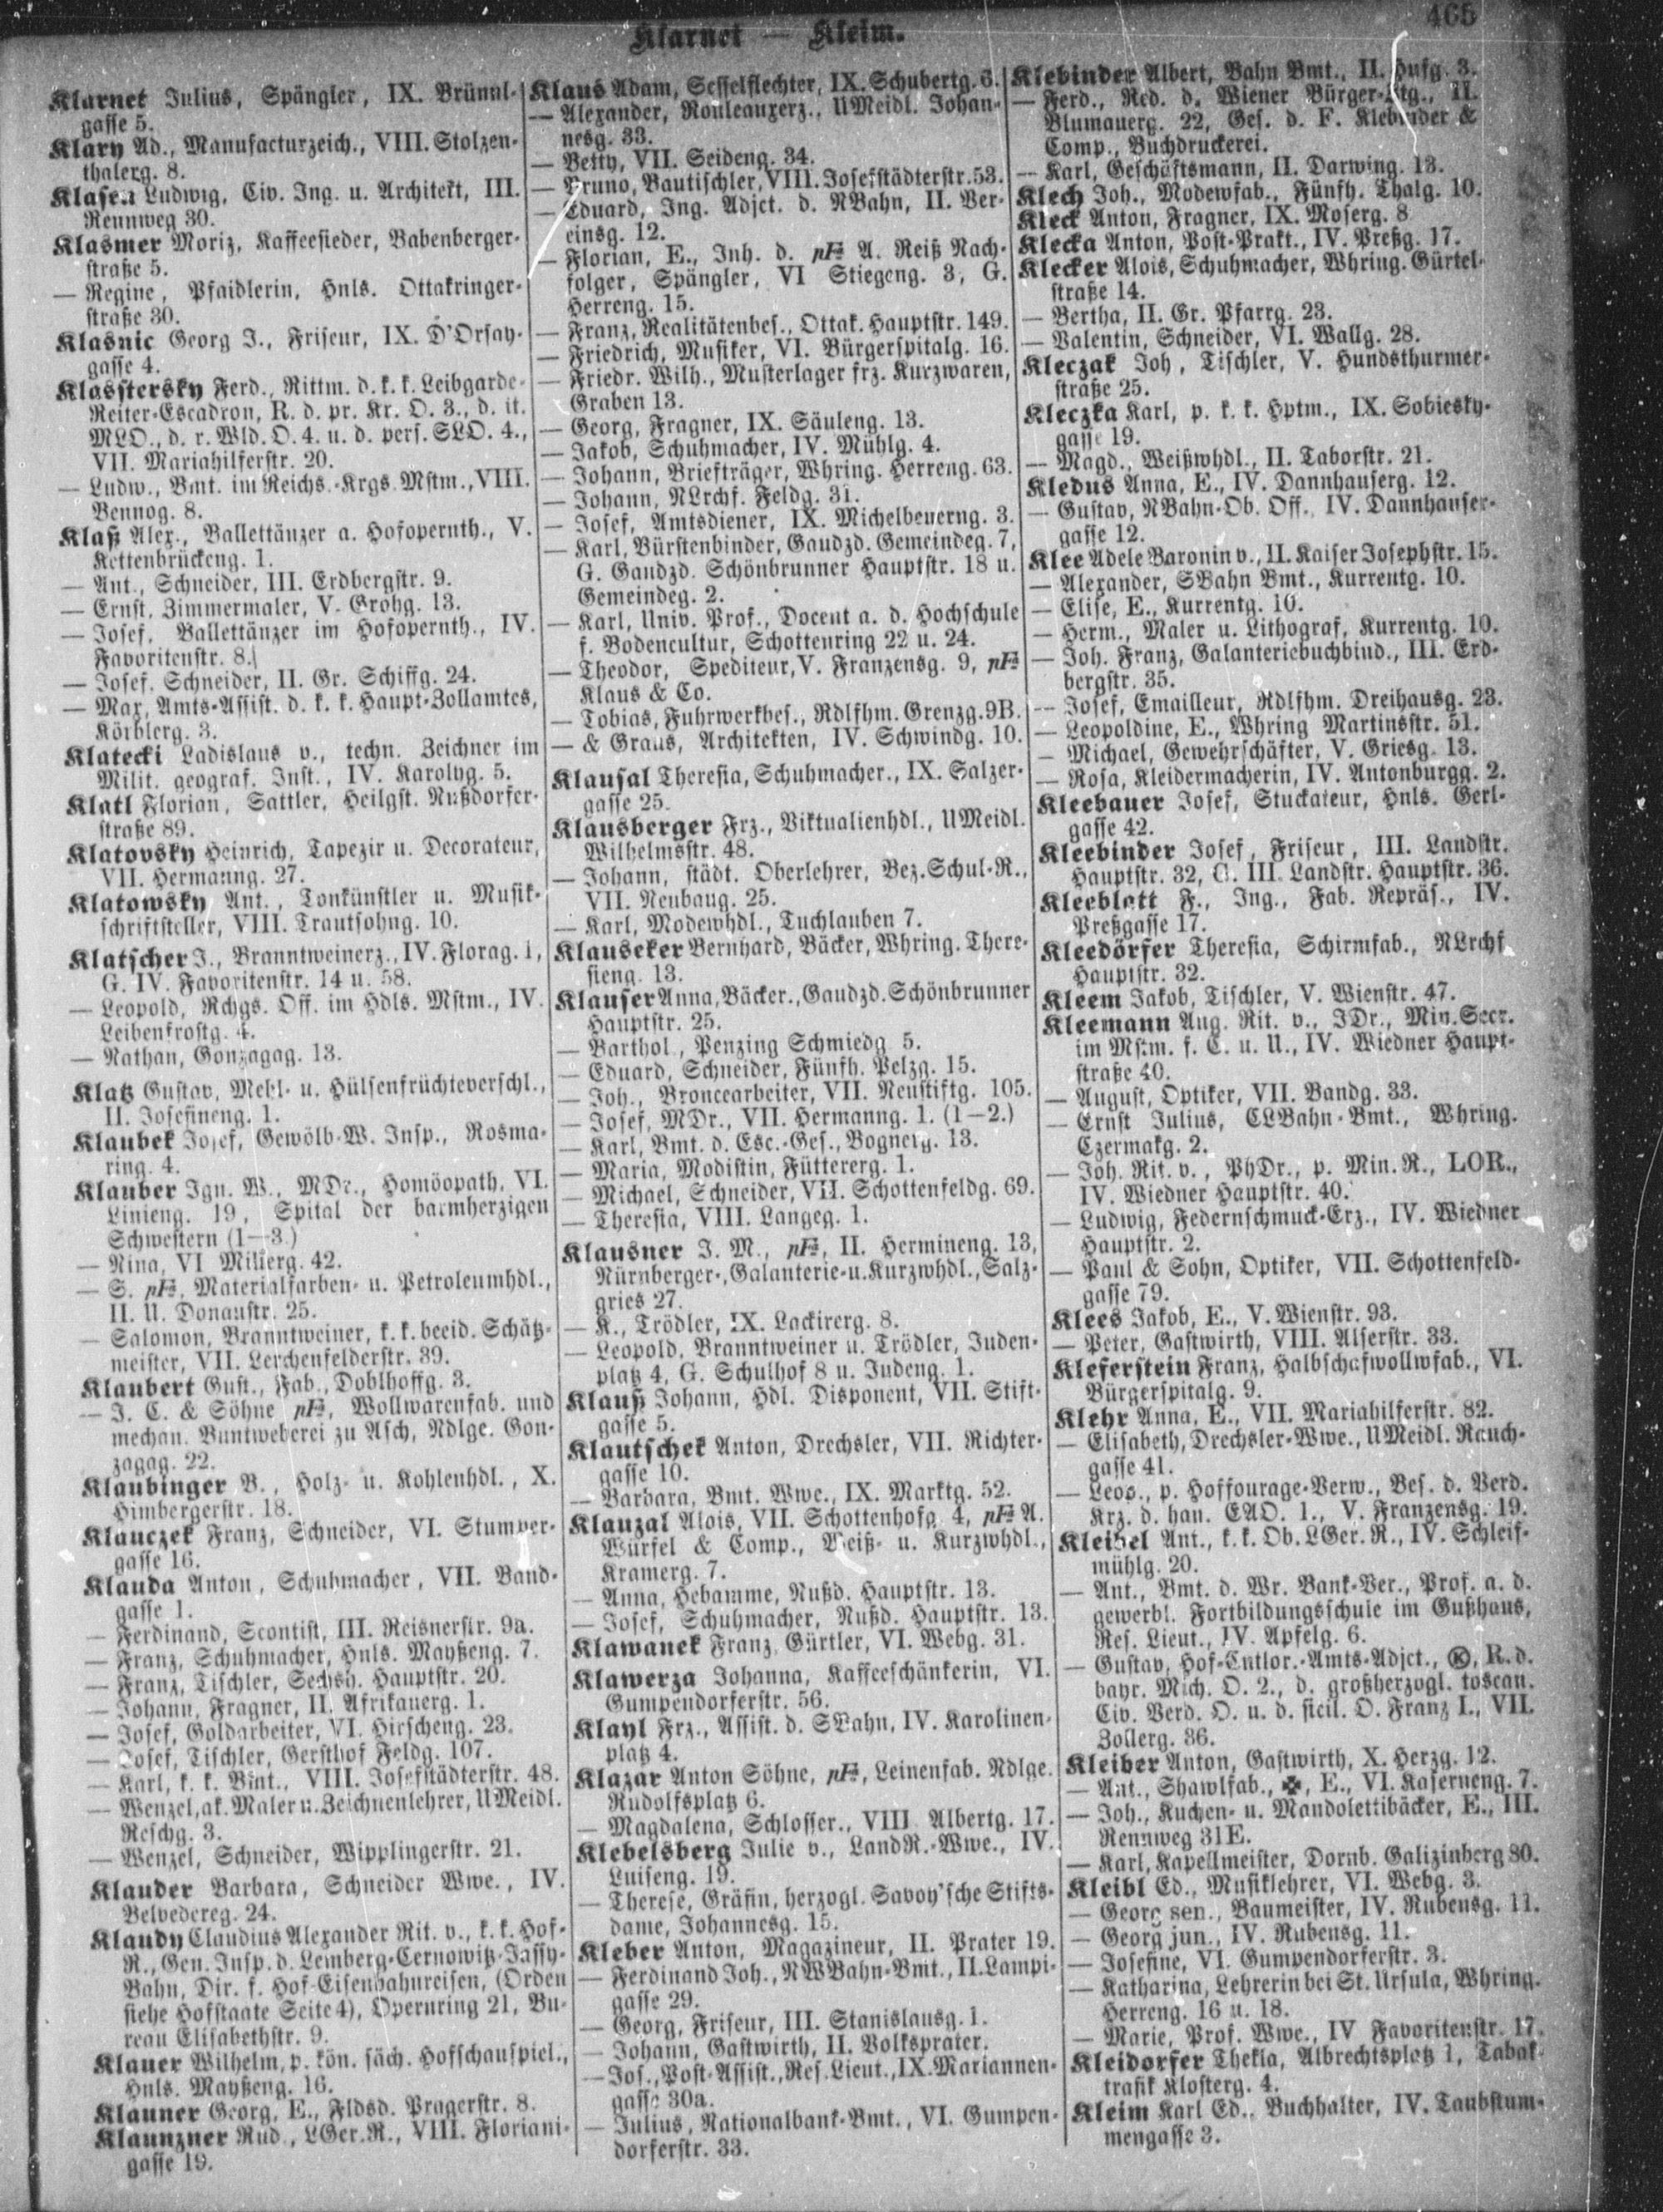 465
Klarnet — Kleim.
Klarnet Julius, Spängler, IX. Brünnl-
gasse 5.
Klary Ad., Manufacturzeich., VIII. Stolzen-
thalerg. 8.
Klasen Ludwig, Civ. Ing. u. Architekt, III.
Rennweg 30.
Klasmer Moriz, Kaffeesieder, Babenberger-
straße 5.
— Regine, Pfaidlerin, Hnls. Ottakringer-
straße 30.
Klasnic Georg J., Friseur, IX. D'Orsay-
gasse 4.
Klasstersky Ferd., Rittm. d. k. k. Leibgarde-
Reiter-Escadron, R. d. pr. Kr. O. 3., d. it.
MLO., d. r. Wld. O. 4. u. d. pers. SLO. 4.,
VII. Mariahilferstr. 20.
— Ludw., Bmt. im Reichs.-Krgs. Mstm., VIII.
Bennog. 8.
Klaß Alex., Ballettänzer a. Hofopernth., V.
Kettenbrückeng. 1.
— Ant., Schneider, III. Erdbergstr. 9.
— Ernst, Zimmermaler, V. Grohg. 13.
— Josef, Ballettänzer im Hofopernth., IV.
Favoritenstr. 8.
— Josef, Schneider, II. Gr. Schiffg. 24.
— Max, Amts-Assist. d. k. k. Haupt-Zollamtes,
Körblerg. 3.
Klatecki Ladislaus v., techn. Zeichner im
Milit. geograf. Inst., IV. Karolyg. 5.
Klatl Florian, Sattler, Heilgst. Nußdorfer-
straße 89.
Klatovsky Heinrich, Tapezir u. Decorateur,
VII. Hermanng. 27.
Klatowsky Ant., Tonkünstler u. Musik-
schriftsteller, VIII. Trautsohng. 10.
Klatscher J., Branntweinerz., IV. Florag. 1,
G. IV. Favoritenstr. 14 u. 58.
— Leopold, Rchgs. Off. im Hdls. Mstm., IV.
Leibenfrostg. 4.
— Nathan, Gonzagag. 13.
Klatz Gustav, Mehl- u. Hülsenfrüchteverschl.,
II. Josefineng. 1.
Klaubek Josef, Gewölb-W. Insp., Rosma-
ring. 4.
Klauber Ign. W., MDr., Homöopath, VI.
Linieng. 19, Spital der barmherzigen
Schwestern (1—3.)
— Nina, VI Millerg. 42.
— S. pFa, Materialfarben- u. Petroleumhdl.,
II. U. Donaustr. 25.
— Salomon, Branntweiner, k. k. beeid. Schätz-
meister, VII. Lerchenfelderstr. 39.
Klaubert Gust., Fab., Doblhoffg. 3.
— J. C. & Söhne pFa, Wollwarenfab. und
mechan. Buntweberei zu Asch, Ndlge. Gon-
zagag. 22.
Klaubinger B., Holz- u. Kohlenhdl., X.
Himbergerstr. 18.
Klauczek Franz, Schneider, VI. Stumper-
gasse 16.
Klauda Anton, Schuhmacher, VII. Band-
gasse 1.
— Ferdinand, Scontist, III. Reisnerstr. 9a.
— Franz, Schuhmacher, Hnls. Mayßeng. 7.
— Franz, Tischler, Sechsh. Hauptstr. 20.
— Johann, Fragner, II. Afrikanerg. 1.
— Josef, Goldarbeiter, VI. Hirscheng. 23.
— Josef, Tischler, Gersthof Feldg. 107.
— Karl, k. k. Bmt., VIII. Josefstädterstr. 48.
— Wenzel, ak. Maler u. Zeichnenlehrer, UMeidl.
Reschg. 3.
— Wenzel, Schneider, Wipplingerstr. 21.
Klauder Barbara, Schneider Wwe., IV.
Belvedereg. 24.
Klaudy Claudius Alexander Rit. v., k. k. Hof-
R., Gen. Insp. d. Lemberg-Cernowitz-Jassy-
Bahn, Dir. f. Hof-Eisenbahnreisen, (Orden
siehe Hofstaate Seite 4), Opernring 21, Bu-
reau Elisabethstr. 9.
Klauer Wilhelm, p. kön. säch. Hofschauspiel.,
Hnls. Mayßeng. 16.
Klauner Georg, E., Fldsd. Pragerstr. 8.
Klaunzner Rud., LGer. R., VIII. Floriani-
gasse 19.
Klaus Adam, Sesselflechter, IX. Schubertg. 6.
— Alexander, Rouleauxerz., UMeidl. Johan-
nesg. 33.
— Betty, VII. Seideng. 34.
— Bruno, Bautischler, VIII. Josefstädterstr. 53.
— Eduard, Ing. Adjct. d. NBahn, II. Ver-
einsg. 12.
— Florian, E., Inh. d. pFa A. Reiß Nach-
folger, Spängler, VI Stiegeng. 3, G.
Herreng. 15.
— Franz, Realitätenbes., Ottak. Hauptstr. 149.
— Friedrich, Musiker, VI. Bürgerspitalg. 16.
— Friedr. Wilh., Musterlager frz. Kurzwaren,
Graben 13.
— Georg, Fragner, IX. Säuleng. 13.
— Jakob, Schuhmacher, IV. Mühlg. 4.
— Johann, Briefträger, Whring. Herreng. 63.
— Johann, NLrchf. Feldg. 31.
— Josef, Amtsdiener, IX. Michelbeuerng. 3.
— Karl, Bürstenbinder, Gaudzd. Gemeindeg. 7,
G. Gaudzd. Schönbrunner Hauptstr. 18 u.
Gemeindeg. 2.
— Karl, Univ. Prof., Docent a. d. Hochschule
f. Bodencultur, Schottenring 22 u. 24.
— Theodor, Spediteur, V. Franzensg. 9, pFa
Klaus & Co.
— Tobias, Fuhrwerkbes., Rdlfhm. Grenzg. 9B.
— & Graus, Architekten, IV. Schwindg. 10.
Klausal Theresia, Schuhmacher., IX. Salzer-
gasse 25.
Klausberger Frz., Viktualienhdl., UMeidl.
Wilhelmsstr. 48.
— Johann, städt. Oberlehrer, Bez. Schul-R.,
VII. Neubaug. 25.
— Karl, Modewhdl., Tuchlauben 7.
Klauseker Bernhard, Bäcker, Whring. There-
sieng. 13.
Klauser Anna, Bäcker., Gaudzd. Schönbrunner
Hauptstr. 25.
— Barthol., Penzing Schmiedg 5.
— Eduard, Schneider, Fünfh. Pelzg. 15.
— Joh., Broncearbeiter, VII. Neustiftg. 105.
— Josef, MDr., VII. Hermanng. 1. (1—2.)
— Karl, Bmt. d. Esc.-Ges., Bognerg. 13.
— Maria, Modistin, Füttererg. 1.
— Michael, Schneider, VII. Schottenfeldg. 69.
— Theresia, VIII. Langeg. 1.
Klausner J. M., pFa, II. Hermineng. 13,
Nürnberger-, Galanterie- u. Kurzwhdl., Salz-
gries 27.
— K., Trödler, IX. Lackirerg. 8.
— Leopold, Branntweiner u. Trödler, Juden-
platz 4, G. Schulhof 8 u. Judeng. 1.
Klauß Johann, Hdl. Disponent, VII. Stift-
gasse 5.
Klautschek Anton, Drechsler, VII. Richter-
gasse 10.
— Barbara, Bmt. Wwe., IX. Marktg. 52.
Klauzal Alois, VII. Schottenhofg 4, pFa A.
Würfel & Comp., Weiß- u. Kurzwhdl.,
Kramerg. 7.
— Anna, Hebamme, Nußd. Hauptstr. 13.
— Josef, Schuhmacher, Nußd. Hauptstr. 13.
Klawanek Franz, Gürtler, VI. Webg. 31.
Klawerza Johanna, Kaffeeschänkerin, VI.
Gumpendorferstr. 56.
Klayl Frz., Assist. d. SBahn, IV. Karolinen-
platz 4.
Klazar Anton Söhne, pFa, Leinenfab. Ndlge.
Rudolfsplatz 6.
— Magdalena, Schlosser., VIII Albertg. 17.
Klebelsberg Julie v., LandR.-Wwe., IV.
Luiseng. 19.
— Therese, Gräfin, herzogl. Savoy'sche Stifts-
dame, Johannesg. 15.
Kleber Anton, Magazineur, II. Prater 19.
— Ferdinand Joh., NWBahn-Bmt., II. Lampi-
gasse 29.
— Georg, Friseur, III. Stanislausg. 1.
— Johann, Gastwirth, II. Volksprater.
— Jos., Post-Assist., Res. Lieut., IX. Mariannen-
gasse 30a.
— Julius, Nationalbank-Bmt., VI. Gumpen-
dorferstr. 33.
Klebinder Albert, Bahn Bmt., II. Hufg. 3.
— Ferd., Red. d. Wiener Bürger-Ztg., II.
Blumauerg. 22, Ges. d. F. Klebinder &
Comp., Buchdruckerei.
— Karl, Geschäftsmann, II. Darwing. 13.
Klech Joh., Modewfab., Fünfh. Thalg. 10.
Kleck Anton, Fragner, IX. Moserg. 8
Klecka Anton, Post-Prakt., IV. Preßg. 17.
Klecker Alois, Schuhmacher, Whring. Gürtel-
straße 14.
— Bertha, II. Gr. Pfarrg. 23.
— Valentin, Schneider, VI. Wallg. 28.
Kleczak Joh, Tischler, V. Hundsthurmer-
straße 25.
Kleczka Karl, p. k. k. Hptm., IX. Sobiesky-
gasse 19.
— Magd., Weißwhdl., II. Taborstr. 21.
Kledus Anna, E., IV. Dannhauserg. 12.
— Gustav, NBahn-Ob. Off., IV. Dannhauser-
gasse 12.
Klee Adele Baronin v., II. Kaiser Josephstr. 15.
— Alexander, SBahn Bmt., Kurrentg. 10.
— Elise, E., Kurrentg. 10.
— Herm., Maler u. Lithograf, Kurrentg. 10.
— Joh. Franz, Galanteriebuchbind., III. Erd-
bergstr. 35.
— Josef, Emailleur, Rdlfhm. Dreihausg. 23.
— Leopoldine, E., Whring Martinsstr. 51.
— Michael, Gewehrschäfter, V. Griesg. 13.
— Rosa, Kleidermacherin, IV. Antonburgg. 2.
Kleebauer Josef, Stuckateur, Hnls. Gerl-
gasse 42.
Kleebinder Josef, Friseur, III. Landstr.
Hauptstr. 32, G. III. Landstr. Hauptstr. 36.
Kleeblatt F., Ing., Fab. Repräs., IV.
Preßgasse 17.
Kleedörfer Theresia, Schirmfab., NLrchf
Hauptstr. 32.
Kleem Jakob, Tischler, V. Wienstr. 47.
Kleemann Aug. Rit. v., JDr., Min. Secr.
im Mstm. f. C. u. U., IV. Wiedner Haupt-
straße 40.
— August, Optiker, VII. Bandg. 33.
— Ernst Julius, CLBahn-Bmt., Whring.
Czermakg. 2.
— Joh. Rit. v., PhDr., p. Min. R., LOR.,
IV. Wiedner Hauptstr. 40.
— Ludwig, Federnschmuck-Erz., IV. Wiedner
Hauptstr. 2.
— Paul & Sohn, Optiker, VII. Schottenfeld-
gasse 79.
Klees Jakob, E., V. Wienstr. 93.
— Peter, Gastwirth, VIII. Alserstr. 33.
Kleferstein Franz, Halbschafwollwfab., VI.
Bürgerspitalg. 9.
Klehr Anna, E., VII. Mariahilferstr. 82.
— Elisabeth, Drechsler-Wwe., UMeidl. Rauch-
gasse 41.
— Leop., p. Hoffourage-Verw., Bes. d. Verd.
Krz. d. han. EAO. 1., V. Franzensg. 19.
Kleibel Ant., k. k. Ob. LGer. R., IV. Schleif-
mühlg. 20.
— Ant., Bmt. d. Wr. Bank-Ver., Prof. a. d.
gewerbl. Fortbildungsschule im Gußhaus,
Res. Lieut., IV. Apfelg. 6.
— Gustav, Hof-Cntlor.-Amts-Adjct., Ⓚ, R. d.
bayr. Mich. O. 2., d. großherzogl. toscan.
Civ. Verd. O. u. d. sicil. O. Franz I., VII.
Zollerg. 36.
Kleiber Anton, Gastwirth, X. Herzg. 12.
— Ant., Shawlfab., ✠, E., VI. Kaserneng. 7.
— Joh., Kuchen- u. Mandolettibäcker, E., III.
Rennweg 31E.
— Karl, Kapellmeister, Dornb. Galizinberg 80.
Kleibl Ed., Musiklehrer, VI. Webg. 3.
— Georg sen., Baumeister, IV. Rubensg. 11.
— Georg jun., IV. Rubensg. 11.
— Josefine, VI. Gumpendorferstr. 3.
— Katharina, Lehrerin bei St. Ursula, Whring.
Herreng. 16 u. 18.
— Marie, Prof. Wwe., IV Favoritenstr. 17.
Kleidorfer Thekla, Albrechtsplatz 1, Tabak-
trafik Klosterg. 4.
Kleim Karl Ed., Buchhalter, IV. Taubstum-
mengasse 3.